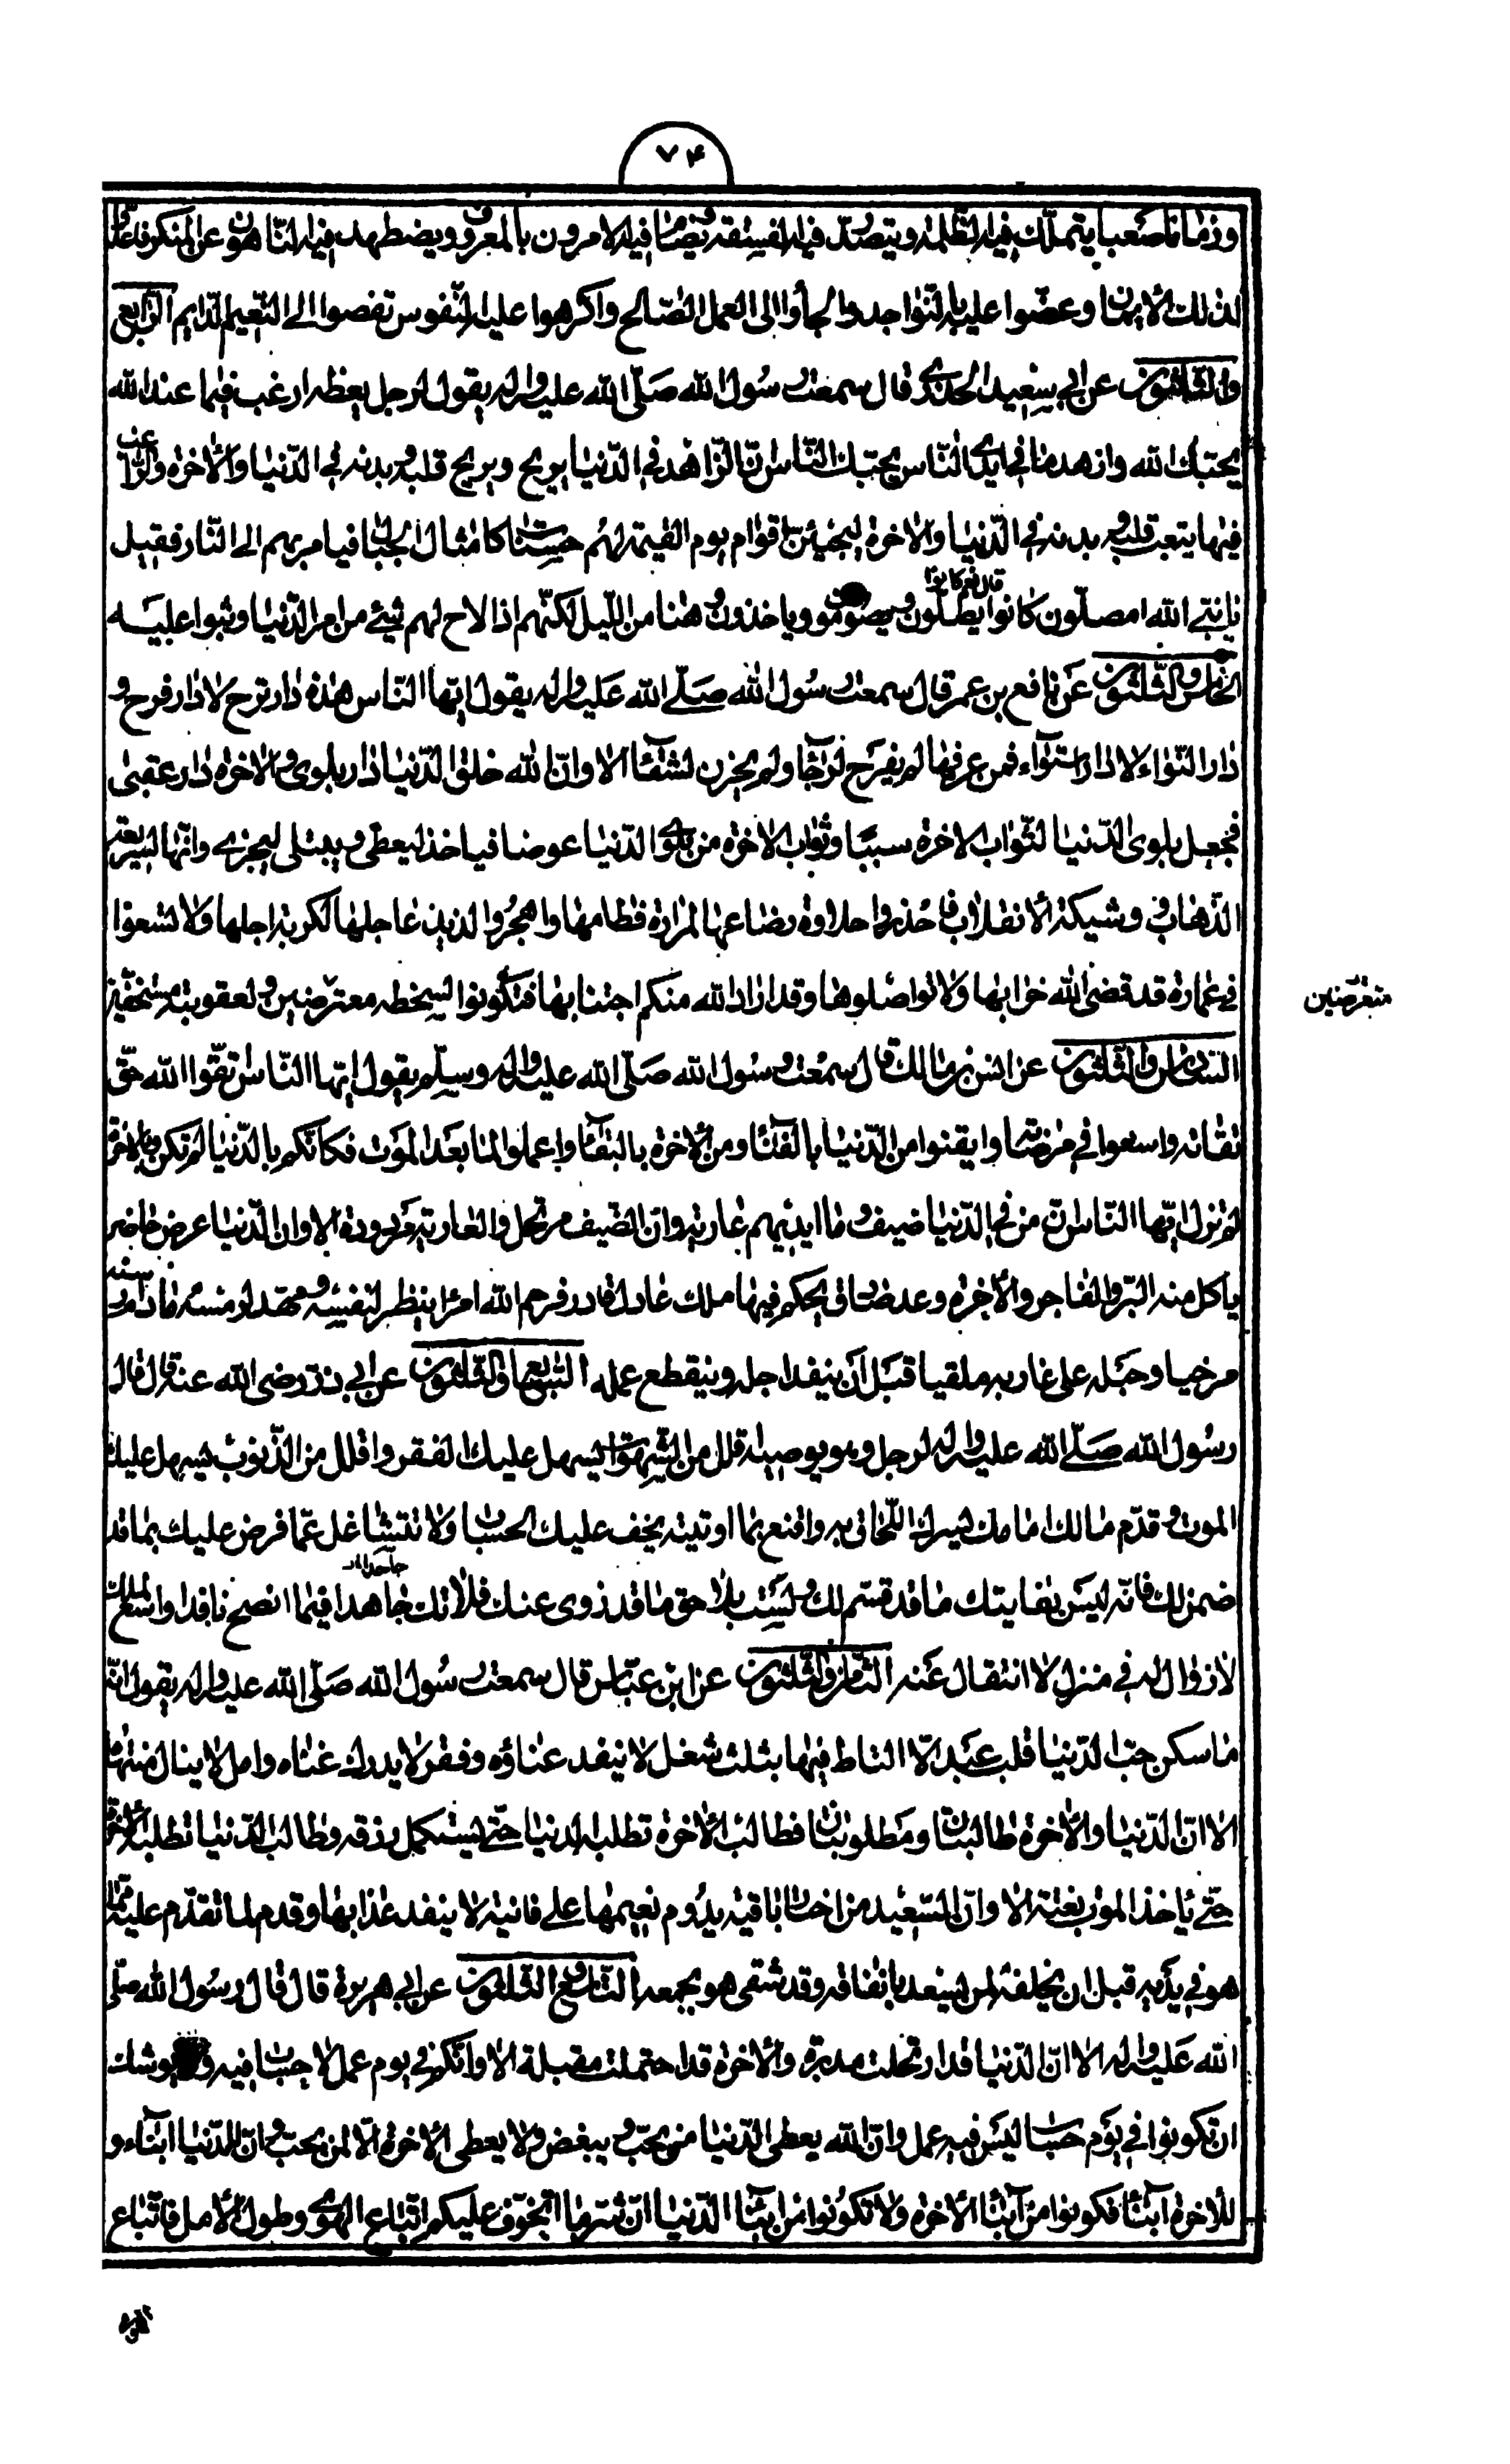 ۷۴
وزمانا صعبا يتملك فيه الظلمة ويتصدّر فيه الفسقة ويضام فيه الامرون بالمعروف ويضطهد فيه الناهون عن المنكر فاعدّوا
لذلك الايمان وعضّوا عليه بالنواجد والجأوا الى العمل الصّالح واكرهوا عليه النّفوس تفضوا الى النّعيم الدّايم الرّابع
والثلثون عن ابى سعيد الخدرى قال سمعت رسول الله صلّى الله عليه واله يقول لرجل يعظه ارغب فيما عند الله
يحبّك الله وازهد ما فى ايدى النّاس يحبّك النّاس انّ الزّاهد فى الدّنيا يريح ويريح قلبه وبدنه فى الدّنيا والاخرة والرّاغب
فيها يتعب قلبه وبدنه فى الدّنيا والاخرة ليجيئنّ اقوام يوم القيمة لهم حسنات كامثال الجبال فيامر بهم الى النّار فقيل
قال نعم كانوا
يا نبىّ الله امصلّون كانوا يصلّون ويصومون وياخذون وهنا من اللّيل لكنّهم اذا لاح لهم شئ من امر الدّنيا وثبوا عليه
الخامس والثّلثون عن نافع بن عمر قال سمعت رسول الله صلّى الله عليه واله يقول ايّها النّاس هذه دار ترح لا دار فرح و
دار التواء لا دار استوآء فمن عرفها لم يفرح لرجآء ولم يحزن لشقآء الا وانّ الله خلق الدّنيا دار بلوى والاخرة دار عقبى
فجعل بلوى الدّنيا لثواب الاخرة سببا وثواب الاخرة من بلوى الدّنيا عوضا فياخذ ليعطى ويبتلى ليجزى وانّها لسريعة
الذّهاب و وشيكة الانقلاب فاحذروا حلاوة رضاعها لمرارة فطامها واهجروا لذيذ عاجلها لكربة اجلها ولا تسعوا
فى عمارة قد قضى الله خرابها ولا تواصلوها وقد اراد الله منكم اجتنابها فتكونوا لسخطه معترضين ولعقوبته مستحقّين
متعرّضين
السّادس والثّلثون عن انس بن مالك قال سمعت رسول الله صلّى الله عليه واله وسلّم يقول ايّها النّاس اتّقوا الله حقّ
تقاته واسعوا فى مرضاته وايقنوا من الدّنيا بالفنآء ومن الاخرة بالبقآء واعملوا لما بعد الموت فكانّكم بالدّنيا لم تكن وبالاخرة
لم تزل ايّها النّاس انّ من فى الدّنيا ضيف وما ايديهم عارية وانّ الضّيف مرتحل والعارية مردودة الا وانّ الدّنيا عرض حاضر
ياكل منه البرّ والفاجر والاخرة وعد صادق يحكم فيها ملك عادل قادر فرحم الله امرء ينظر لنفسه ومهّد لرمسه مادام رسنه
مرخيا وحبله على غاربه ملقيا قبل ان ينفد اجله وينقطع عمله السّابع والثّلثون عن ابى ذر رضى الله عنه قال قال
رسول الله صلّى الله عليه واله لرجل وهو يوصيه اقلل من الشّهوات يسهل عليك الفقر واقلل من الذّنوب يسهل عليك
الموت وقدّم مالك امامك يسرك اللّحاق به واقنع بما اوتيته يخف عليك الحساب ولا تتشاغل عمّا فرض عليك بما قد
ضمن لك فانّه ليس بفايتك ما قد قسّم لك ولست بلاحق ما قد زوى عنك فلا تك جاهدا فيما انصح نافدا واسع لملك
لا زوال له فى منزل لا انتقال عنه الثّامن والثّلثون عن ابن عبّاس قال سمعت رسول الله صلّى الله عليه واله يقول انّه
ما سكن حبّ الدّنيا قلب عبد الّا التاط فيها بثلث شغل لا ينفد عناؤه وفقر لا يدرك غناه وامل لا ينال منتهاه
الا انّ الدّنيا والاخرة طالبتان ومطلوبتان فطالب الاخرة تطلبه الدنيا حتّى يستكمل رزقه وطالب الدّنيا تطلبه الاخرة
حتّى ياخذ الموت بغتة الا وانّ السّعيد من اختار باقية يدوم نعيمها على فانية لا ينفد عذابها وقدم لما تقدّم عليه ممّا
هو فى يديه قبل ان يخلفه لمن يسعد بانفاقه وقد شقى هو بجمعه التّاسع والثّلثون عن ابى هريرة قال قال رسول الله صلّى
الله عليه واله الا انّ الدّنيا قد ارتحلت مدبرة والاخرة قد احتملت مقبلة الا وانّكم فى يوم عمل لا حساب فيه ويوشك
ان تكونوا فى يوم حساب ليس فيه عمل وانّ الله يعطى الدّنيا من يحبّ ويبغض ولا يعطى الاخرة الّا لمن يحبّ وانّ للدّنيا ابنآء و
للاخرة ابنآء فكونوا من ابنآء الاخرة ولا تكونوا من ابنآء الدّنيا انّ شرّ ما اتخوّف عليكم اتّباع الهوى وطول الامل فاتّباع